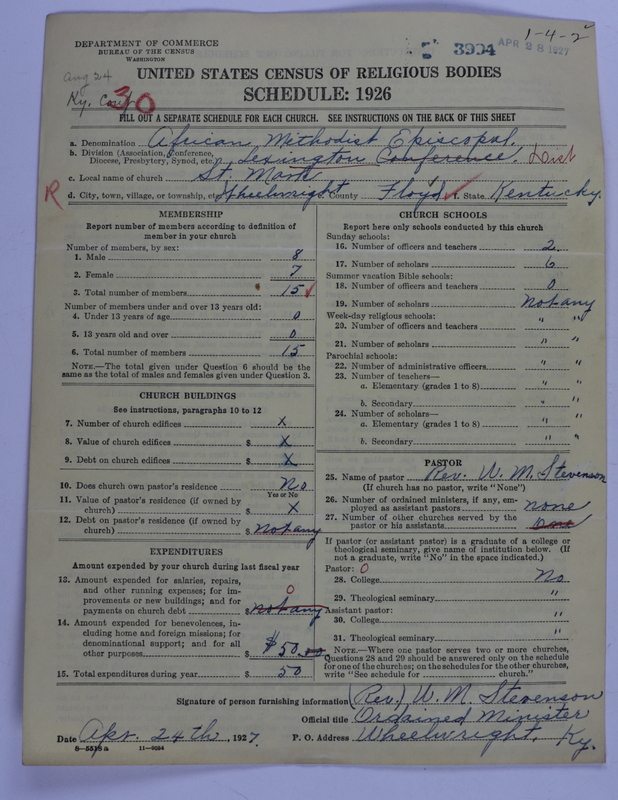 1-4-2
DEPARTMENT OF COMMERCE
BUREAU OF THE CENSUS
WASHINGTON
3904 APR 28 1927
Aug 24
Ky.
30
UNITED STATES CENSUS OF RELIGIOUS BODIES
SCHEDULE: 1926
FILL OUT A SEPARATE SCHEDULE FOR EACH CHURCH. SEE INSTRUCTIONS ON THE BACK OF THIS SHEET
a. Denomination African Methodist Episcopal.
b. Division (Association, Conference, Diocese, Presbytery, Synod, etc.) Lexington Conference. Dist
c. Local name of church St. Mark
R d. City, town, village, or township, etc. Wheelwright e. County Floyd f. State Kentucky.
MEMBERSHIP
Report number of members according to definition of member in your church
Number of members, by sex:
1. Male 8
2. Female 7
3. Total number of members 15
Number of members under and over 13 years old:
4. Under 13 years of age 0
5. 13 years old and over 0
6. Total number of members 15
NOTE.—The total given under Question 6 should be the same as the total of males and females given under Question 3.
CHURCH BUILDINGS
See instructions, paragraphs 10 to 12
7. Number of church edifices X
8. Value of church edifices $ X
9. Debt on church edifices $ X
10. Does church own pastor's residence? No
Yes or No
11. Value of pastor's residence (if owned by church) $ X
12. Debt on pastor's residence (if owned by church) $ not any
EXPENDITURES
Amount expended by your church during last fiscal year
13. Amount expended for salaries, repairs, and other running expenses; for improvements or new buildings; and for payments on church debt $ not any 0
14. Amount expended for benevolences, including home and foreign missions; for denominational support; and for all other purposes $ $50.00
15. Total expenditures during year $ 50
CHURCH SCHOOLS
Report here only schools conducted by this church
Sunday schools:
16. Number of officers and teachers 2
17. Number of scholars 6
Summer vacation Bible schools:
18. Number of officers and teachers 0
19. Number of scholars not any
Week-day religious schools:
20. Number of officers and teachers " "
21. Number of scholars " "
Parochial schools:
22. Number of administrative officers " "
23. Number of teachers—
a. Elementary (grades 1 to 8) " "
b. Secondary " "
24. Number of scholars—
a. Elementary (grades 1 to 8) " "
b. Secondary " "
PASTOR
25. Name of pastor Rev. W. M. Stevenson
(If church has no pastor, write "None")
26. Number of ordained ministers, if any, employed as assistant pastors none
27. Number of other churches served by the pastor or his assistants
If pastor (or assistant pastor) is a graduate of a college or theological seminary, give name of institution below. (If not a graduate, write "No" in the space indicated.)
Pastor: 0
28. College No
29. Theological seminary "
Assistant pastor:
30. College "
31. Theological seminary "
NOTE.—Where one pastor serves two or more churches, Questions 28 and 29 should be answered only on the schedule for one of the churches; on the schedules for the other churches, write "See schedule for church."
Signature of person furnishing information (Rev.) W. M. Stevenson
Official title Ordained Minister
Date Apr. 24th, 1927 P. O. Address Wheelwright, Ky.
8—5518a 11—9094